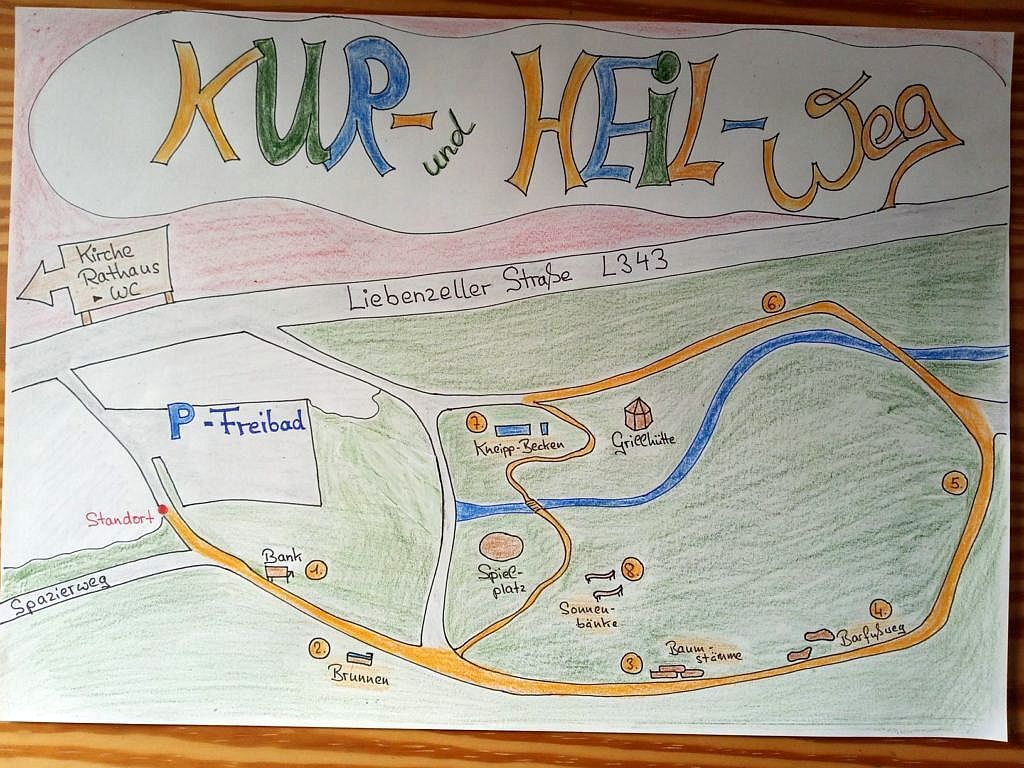 KUR- und HEiL-Weg
Kirche
Rathaus
▸ WC
Liebenzeller Straße L343
6.
P-Freibad
7.
Kneipp-Becken
Grillhütte
5.
Standort
Bank
1.
Spiel-
platz
8.
Sonnen-
bänke
Spazierweg
2.
Brunnen
3.
Baum-
stämme
4.
Barfußweg